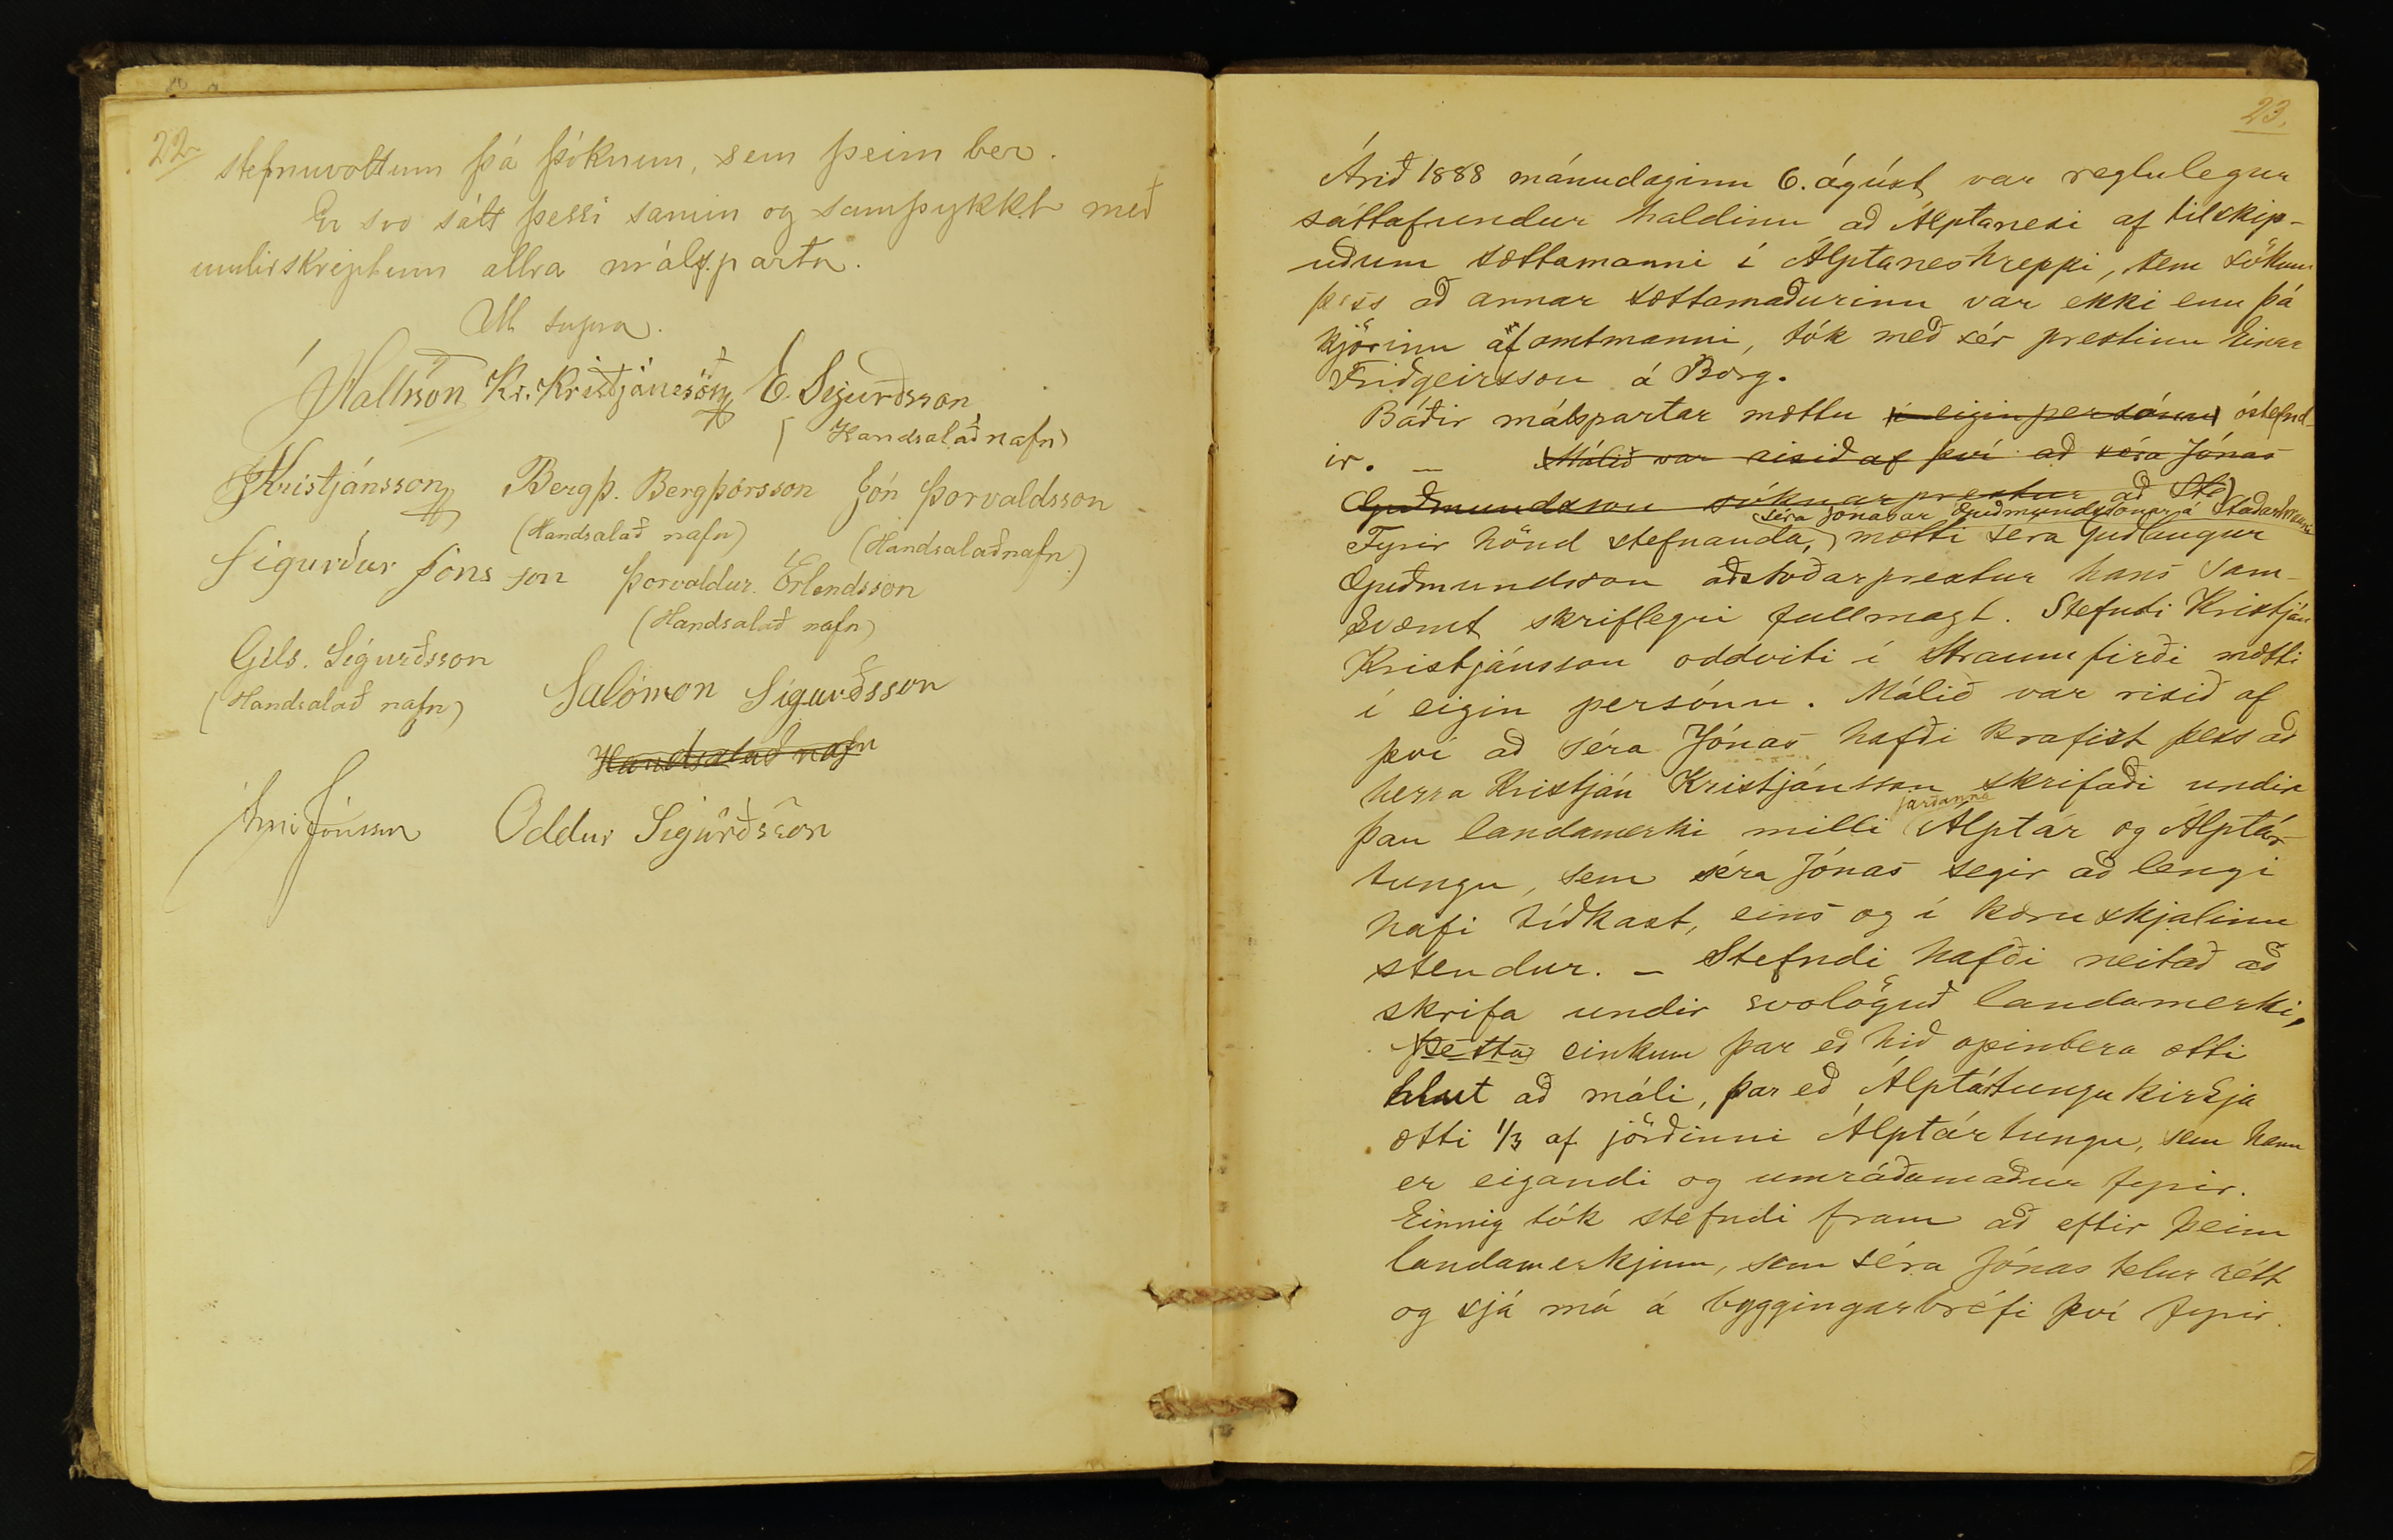 22
stefnuvottum þá þóknun, sem þeim ber.
Er svo sátt þessi samin og samþykkt með
undirskriptum allra málsparta.
Ut supra.
JHallsson Kr. Kristjánsson E. Sigurðsson
(Handsalað nafn)
JKristjánsson Bergþ. Bergþórsson Jón Þorvaldsson
(Handsalað nafn) (Handsalað nafn)
Sigurður Jónsson Þorvaldur Erlendsson
(Handsalað nafn)
Gils. Sigurðsson
(Handsalað nafn) Salómon Sigurðsson
Handsalað nafn
Árni Jónsson Oddur Sigurðsson
23.
Árið 1888 mánudaginn 6. ágúst var reglulegur
sáttafundur haldinn að Álptanesi af tilskip-
uðum sættamanni í Álptaneshreppi, sem sökum
þess að annar sættamaðurinn var ekki enn þá
kjörinn af amtmanni, tók með sér prestinn Einar
Friðgeirsson á Borg.
Báðir málspartar mættu í eigin persónu óstefnd-
ir. — Málið var risið af því að séra Jónas
Guðmundsson sóknarprestur að Sta
séra Jónasar Guðmundssonar á Staðarhrauni
Fyrir hönd stefnanda, mætti séra Guðlaugur
Guðmundsson aðstoðarprestur hans sam-
kvæmt skriflegri fullmagt. Stefndi Kristján
Kristjánsson oddviti í Straumfirði mætti
í eigin persónu. Málið var risið af
því að séra Jónas hafði krafist þess að
herra Kristján Kristjánsson skrifaði undir
jarðanna
þau landamerki milli Álptár og Álptár-
tungu, sem séra Jónas segir að lengi
hafi tíðkast, eins og í kæruskjalinu
stendur. — Stefndi hafði neitað að
skrifa undir svolöguð landamerki,
Þetta einkum þar eð hið opinbera ætti
hlut að máli, þar eð Álptártungu kirkja
ætti 1/3 af jörðinni Álptártungu, sem hann
er eigandi og umráðamaður fyrir.
Einnig tók stefndi fram að eftir þeim
landamerkjum, sem séra Jónas telur rétt
og sjá má á byggingarbréfi því fyrir